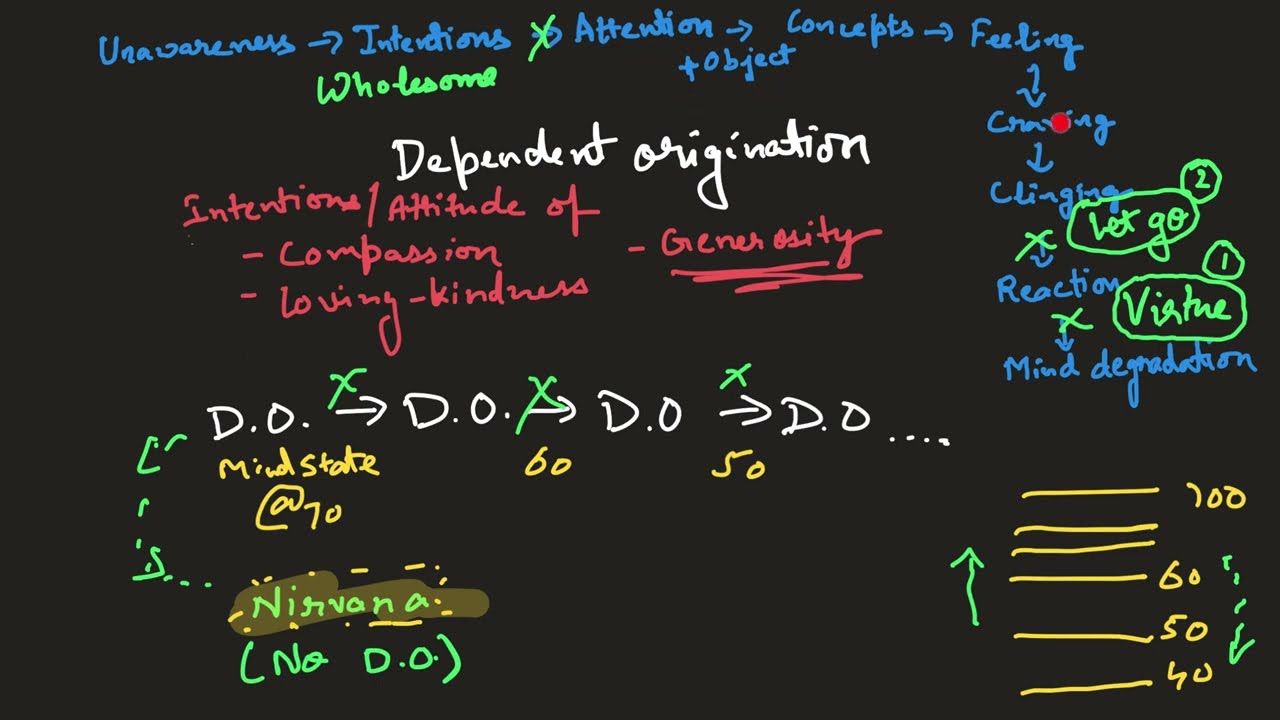 Unawareness → Intentions → Attention → Concepts → Feeling
+ Object
Wholesome
↓
Craving
↓
Clinging
② Let go
↓
Reaction
① Virtue
↓
Mind degradation
Dependent origination
Intentions/Attitude of
- Compassion
- Loving-kindness
- Generosity
D.O. → D.O. → D.O → D.O ....
Mind state
@70
60
50
Nirvana
(No D.O.)
100
60
50
40